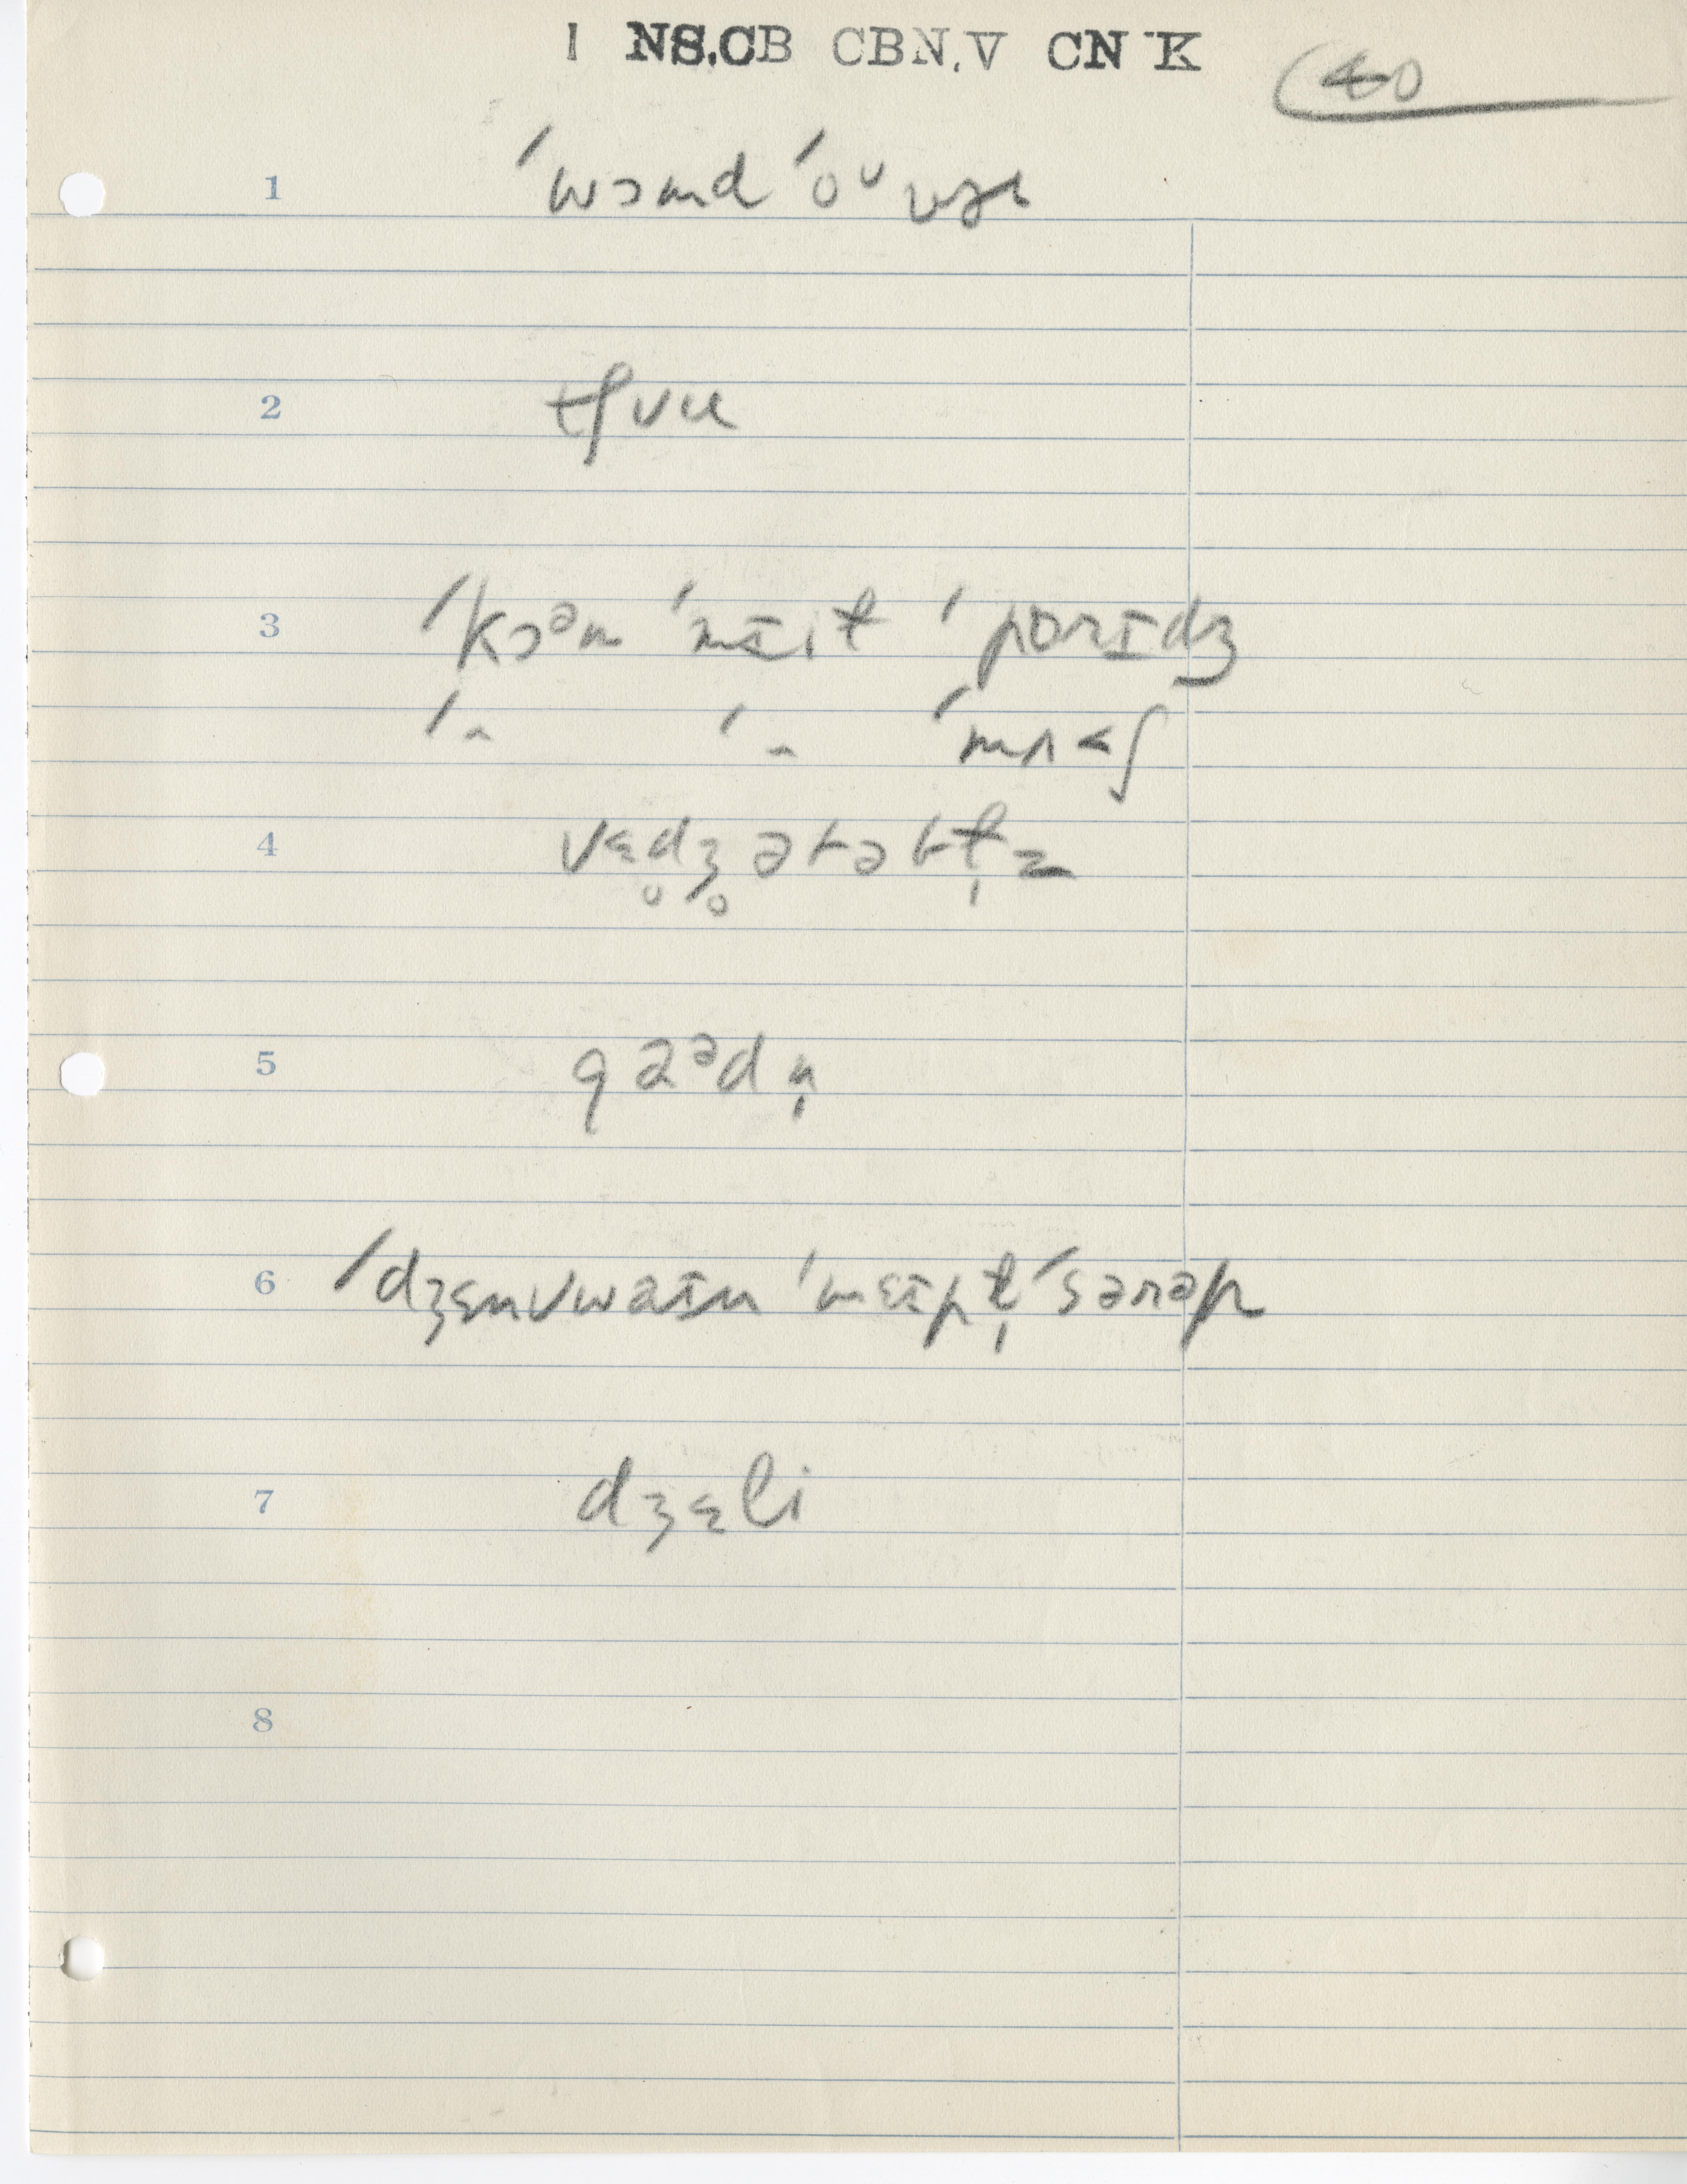 I NS.CB CBN.V CN K
40
1 ˈwɔmd ˈoᴜvɚ
2 tʃuu
3 ˈkɔᵊn ˈmɪit ˈpɒrɪdʒ
ˈ" ˈ" ˈmʌʃ
4 vɛdʒətəbt̩z
5 gaᵊdn̩
6 ˈdʒɛnvwaɪn ˈmɛɪpt̩ ˈsərəp
7 dʒɛli
8